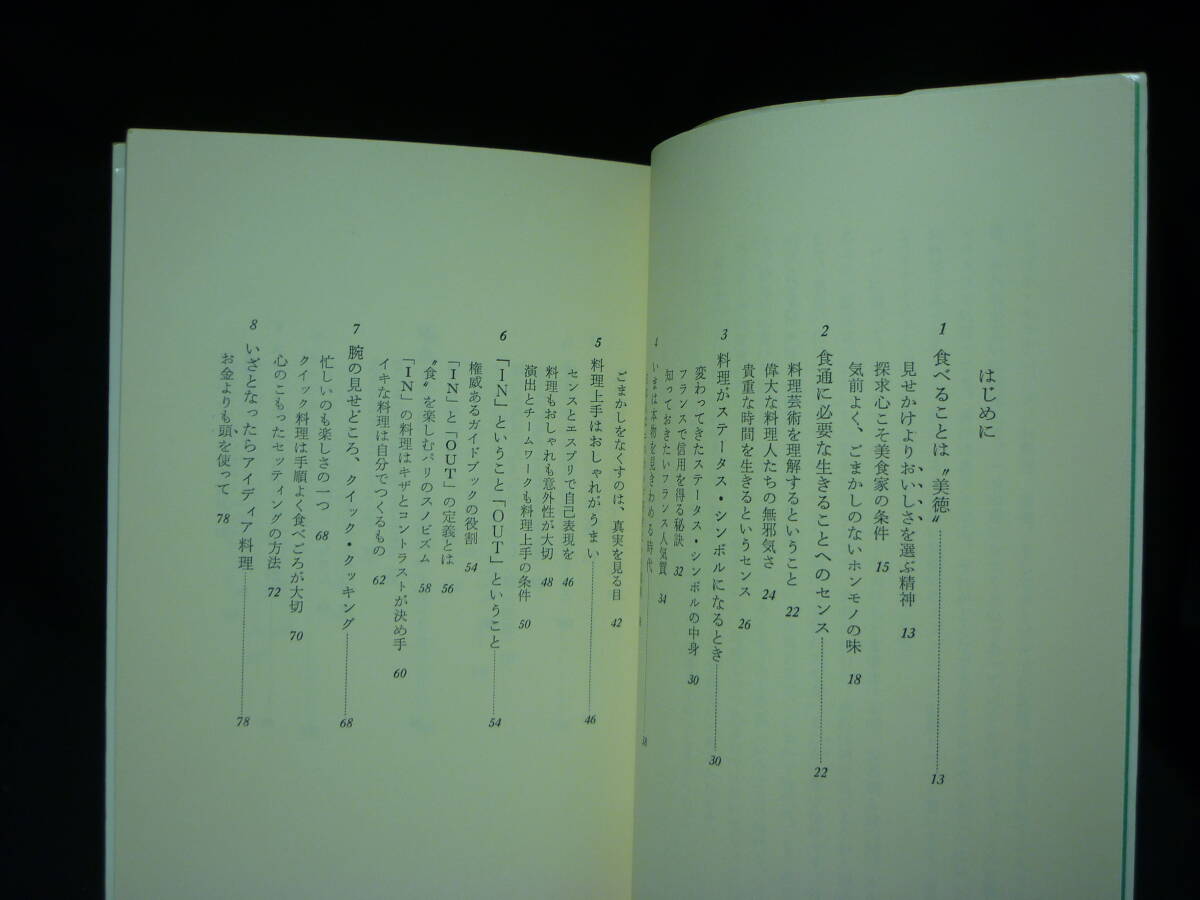 はじめに
1 食べることは〝美徳〟 13
見せかけよりおいしさを選ぶ精神 13
探求心こそ美食家の条件 15
気前よく、ごまかしのないホンモノの味 18
2 食通に必要な生きることへのセンス 22
料理芸術を理解するということ 22
偉大な料理人たちの無邪気さ 24
貴重な時間を生きるというセンス 26
3 料理がステータス・シンボルになるとき 30
変わってきたステータス・シンボルの中身 30
フランスで信用を得る秘訣 32
知っておきたいフランス人気質 34
4 いまは本物を見きわめる時代 38
ごまかしをなくすのは、真実を見る目 42
5 料理上手はおしゃれがうまい 46
センスとエスプリで自己表現を 46
料理もおしゃれも意外性が大切 48
演出とチームワークも料理上手の条件 50
6 「IN」ということ「OUT」ということ 54
権威あるガイドブックの役割 54
「IN」と「OUT」の定義とは 56
〝食〟を楽しむパリのスノビズム 58
「IN」の料理はキザとコントラストが決め手 60
イキな料理は自分でつくるもの 62
7 腕の見せどころ、クイック・クッキング 68
忙しいのも楽しさの一つ 68
クイック料理は手順よく食べごろが大切 70
心のこもったセッティングの方法 72
8 いざとなったらアイディア料理 78
お金よりも頭を使って 78